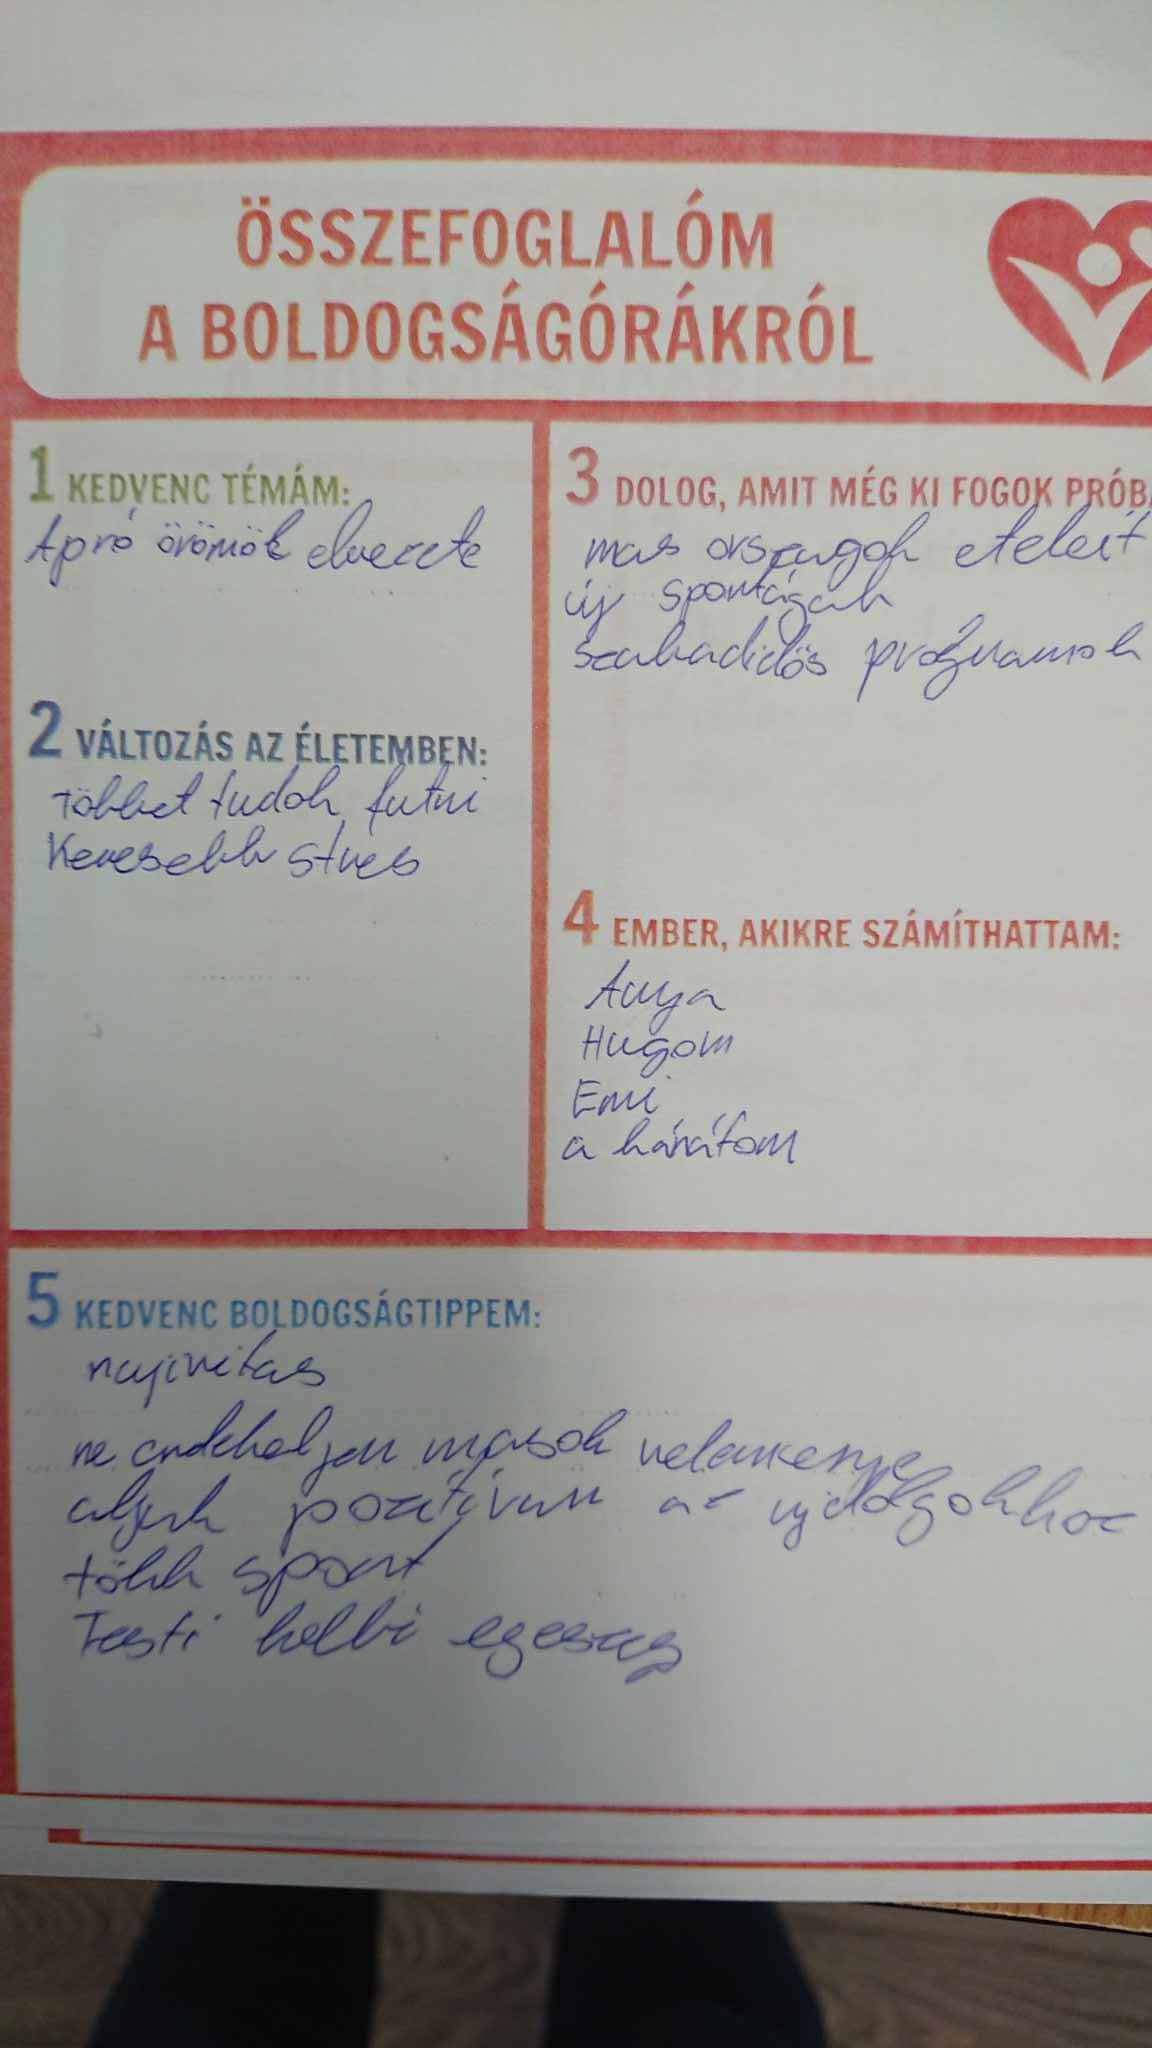 ÖSSZEFOGLALÓM
A BOLDOGSÁGÓRÁKRÓL
1 KEDVENC TÉMÁM:
Apró örömök elvezete
2 VÁLTOZÁS AZ ÉLETEMBEN:
többet tudok futni
Kevesebb stres
3 DOLOG, AMIT MÉG KI FOGOK PRÓB
mas országok eteleit
új sportágak
szabadidős programok
4 EMBER, AKIKRE SZÁMÍTHATTAM:
Anya
Hugom
Emi
a barátom
5 KEDVENC BOLDOGSÁGTIPPEM:
nyivitas
ne erdekeljen masok velemenye
aljunk pozitívan az uj dolgokhoz
több sport
Testi lelki egeszseg